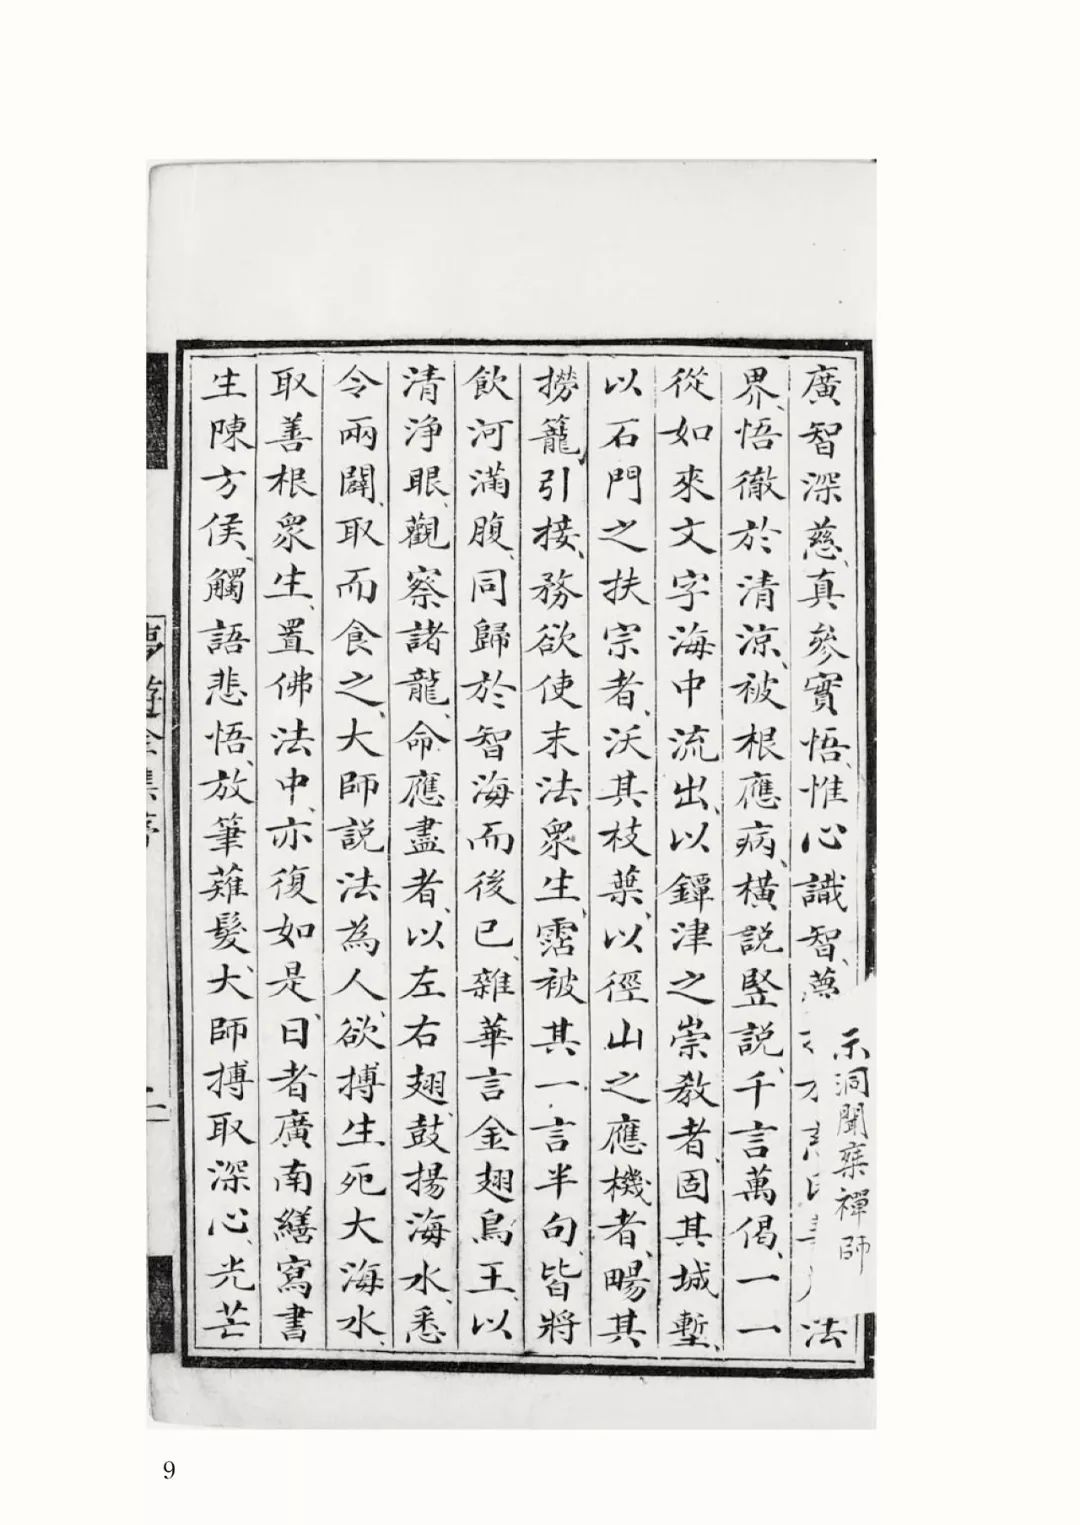 廣智深慈、真參實悟、惟心識智、法
示洞聞椉禪師
界、悟徹於清涼、被根應病、橫説豎説、千言萬偈、一一
從如來文字海中流出、以鐔津之崇教者、固其城塹、
以石門之扶宗者、沃其枝葉、以徑山之應機者、暢其
撈籠引接、務欲使末法衆生、霑被其一言半句、皆將
飲河滿腹、同歸於智海而後已、雜華言金翅鳥王、以
清浄眼、觀察諸龍、命應盡者、以左右翅、鼓揚海水、悉
令兩闢、取而食之、大師説法為人、欲搏生死大海水、
取善根衆生、置佛法中、亦復如是、日者廣南繕寫書
生陳方侯、觸語悲悟、放筆薙髮、大師搏取深心、光芒
9